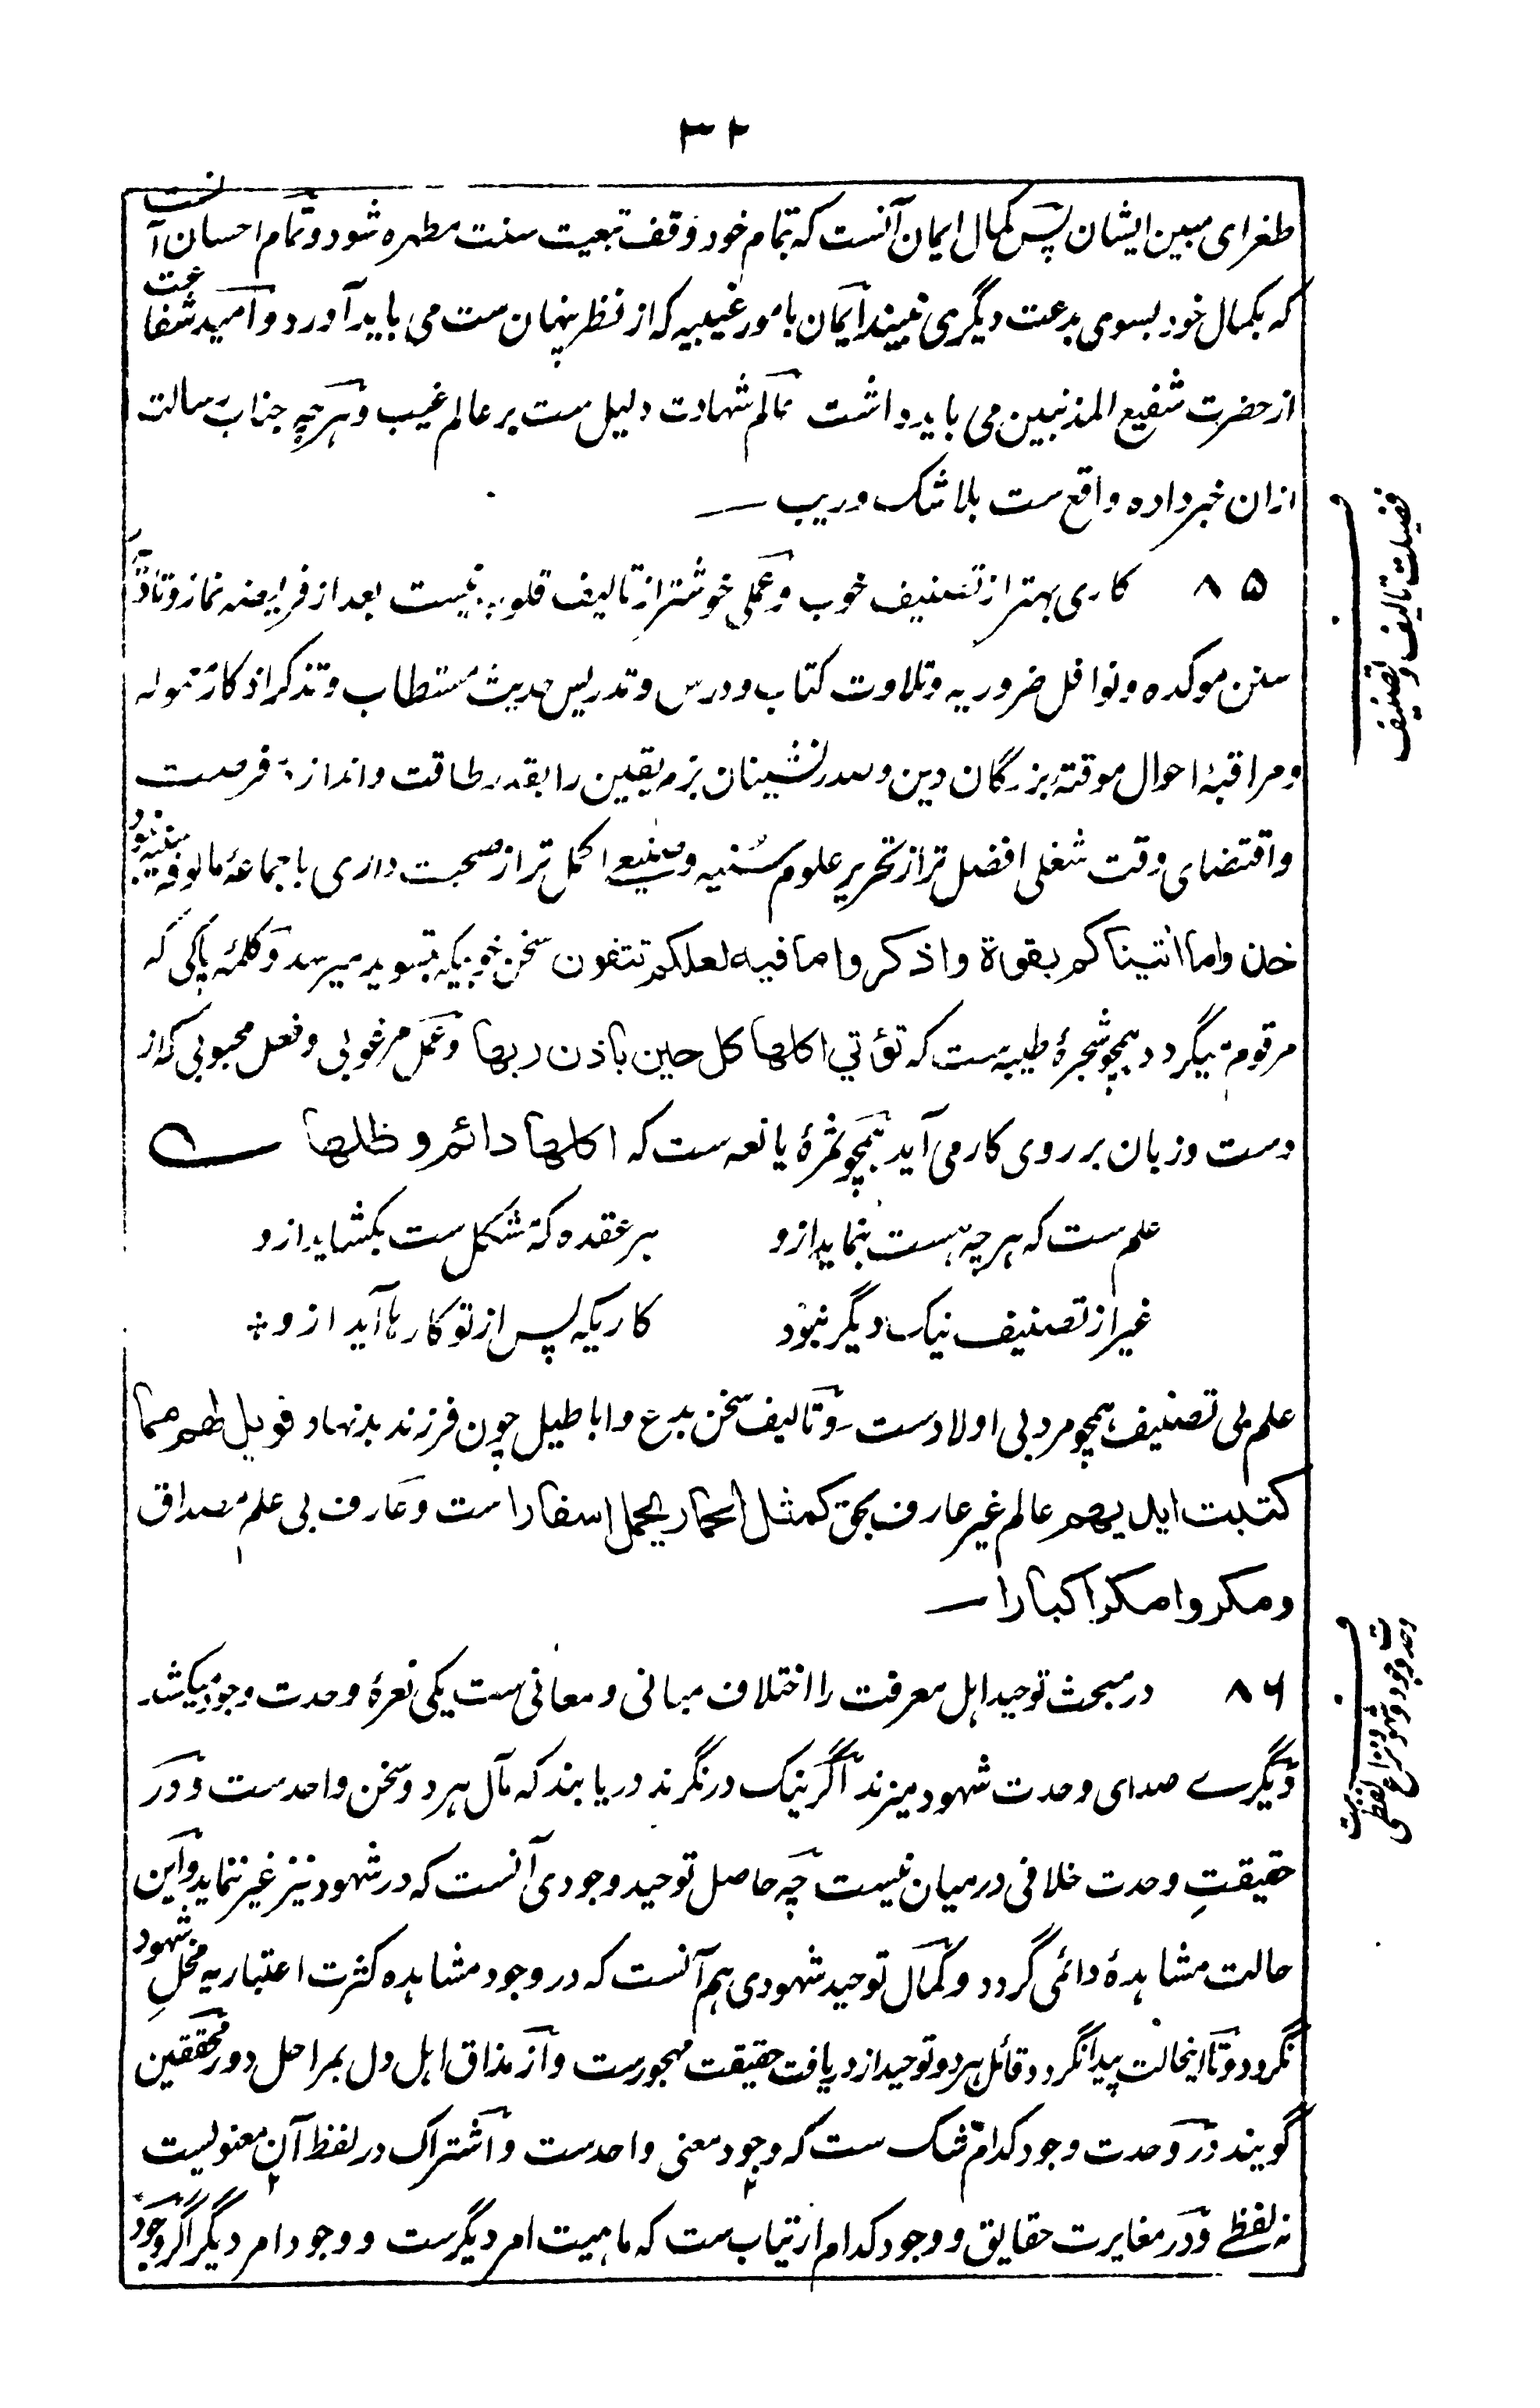 ۳۲
طغرای مبین ایشان پس کمال ایمان آنست که تمام خود وقف تبعیت سنت مطهره شود و تمام احسان آنست
که بکمال خود بسوی بدعت دیگری نبیند ایمان بامور غیبیه که از نظر پنهان ست می باید آورد و امید شفاعت
از حضرت شفیع المذنبین می باید داشت عالم شهادت دلیل ست بر عالم غیب و هرچه جناب رسالت
ازان خبر داده واقع ست بلا شک و ریب
۸۵ کاری بهتر از تصنیف خوب و عملی خوشتر از تالیف قلوب نیست بعد از فریضه نماز و
سنن موکده و نوافل ضروریه و تلاوت کتاب و درس و تدریس حدیث مستطاب و تذکر اذکار
و مراقبۀ احوال موقتۀ بزرگان دین و صدر نشینان بزم یقین را بقدر طاقت و اندازۀ فرصت
و اقتضای وقت شغلی افضل تر از تحریر علوم سنیه و صنیعی اکمل تر از صحبت داری با جماعۀ مالوفه نبود
خذوا ما اتیناکم بقوة واذکروا ما فیه لعلکم تتقون سخن خوبیکه بتسوید میرسد و کلمۀ پاکی که
مرقوم میگردد همچو شجرۀ طیبه ست که تؤتي اکلها کل حین باذن ربها و عمل مرغوبی و فعل محبوبی که از
دست و زبان بر روی کار می آید همچو ثمرۀ یانعه ست که اکلها دائم وظلها
علم ست که هرچه هست بنماید ازو هر عقده که مشکل ست بکشاید ازو
غیر از تصنیف نیک دیگر نبود کاریکه پس از تو کارها آید ازو
علم بی تصنیف همچو مرد بی اولادست و تالیف سخن بدع و اباطیل چون فرزند بدنهاد فویل لهم مما
کتبت ایدیهم عالم غیر عارف بحق کمثل الحمار یحمل اسفارا ست و عارف بی علم مصداق
ومکروا مکرا کبارا
۸۶ در مبحث توحید اهل معرفت را اختلاف مبانی و معانی ست یکی نعرۀ وحدت وجود میکشد
دیگرے صدای وحدت شهود میزند اگر نیک در نگرند دریابند که مآل هر دو سخن واحدست و در
حقیقتِ وحدت خلافی درمیان نیست چه حاصل توحید وجودی آنست که در شهود نیز غیر ننماید و این
حالت مشاهدۀ دائمی گردد و کمال توحید شهودی هم آنست که در وجود مشاهده کثرت اعتباریه مخلِ شهود
نگردد و تا اینحالت پیدا نگردد قائل هر دو توحید از دریافت حقیقت مهجورست و از مذاق اهل دل بمراحل دور محققین
گویند در وحدت وجود کدام شک ست که وجود معنی واحدست و اشتراک در لفظ آن معنویست
نه لفظے و در مغایرت حقایق و وجود کدام ارتیاب ست که ماهیت امر دیگرست و وجود امر دیگر اگر وجود
ف
فضیلت تالیف و تصنیف
ف
وحدت وجود و شهود نزاع لفظی ست